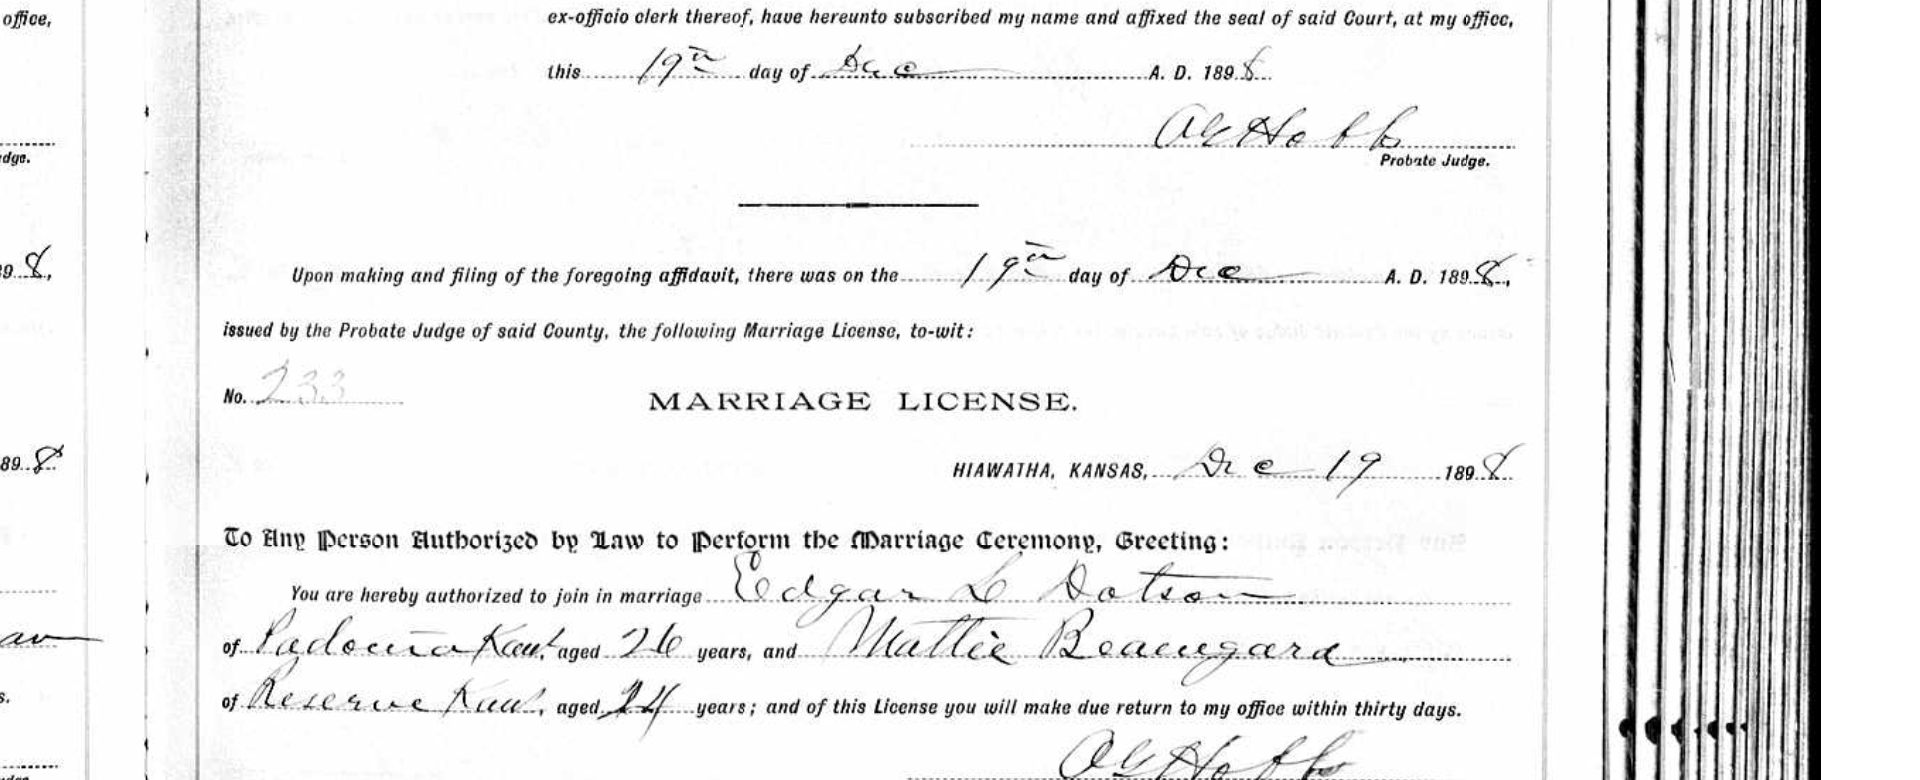 office,
ex-officio clerk thereof, have hereunto subscribed my name and affixed the seal of said Court, at my office,
this 19th day of Dec A. D. 1898
Hobb
dge.
Probate Judge.
9 8,
Upon making and filing of the foregoing affidavit, there was on the 19th day of Dec A. D. 1898,
issued by the Probate Judge of said County, the following Marriage License, to-wit:
No. 233
MARRIAGE LICENSE.
89 8
HIAWATHA, KANSAS, Dec 19 1898
To Any Person Authorized by Law to Perform the Marriage Ceremony, Greeting:
You are hereby authorized to join in marriage Edgar L Dotson
of Padonia Kans, aged 26 years, and Mattie Beauegard
s.
of Reserve Kans, aged 24 years; and of this License you will make due return to my office within thirty days.
Hobb